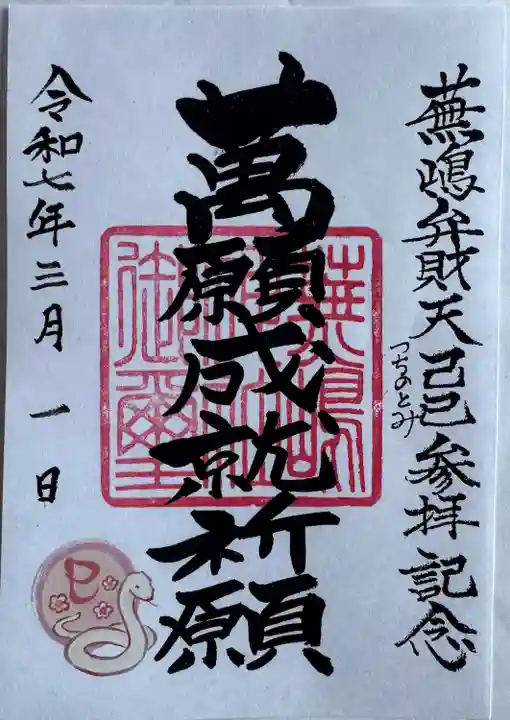 蕪嶋弁財天己巳参拝記念
つちのとみ
萬願成就祈願
令和七年三月一日
巳